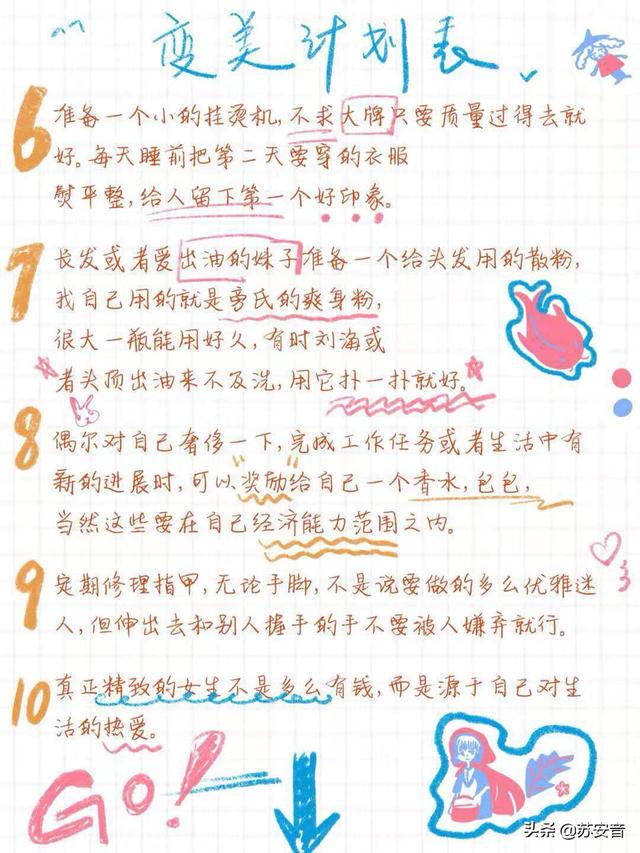 变美计划表
6 准备一个小的挂烫机,不求大牌只要质量过得去就
好。每天睡前把第二天要穿的衣服
熨平整,给人留下第一个好印象。
7 长发或者爱出油的妹子准备一个给头发用的散粉,
我自己用的就是旁氏的爽身粉,
很大一瓶能用好久,有时刘海或
者头顶出油来不及洗,用它扑一扑就好。
8 偶尔对自己奢侈一下,完成工作任务或者生活中有
新的进展时,可以"奖励"给自己一个香水,包包,
当然这些要在自己经济能力范围之内。
9 定期修理指甲,无论手脚,不是说要做的多么优雅迷
人,但伸出去和别人握手的手不要被人嫌弃就行。
10 真正精致的女生不是多么有钱,而是源于自己对生
活的热爱。
GO!
头条 @苏安音